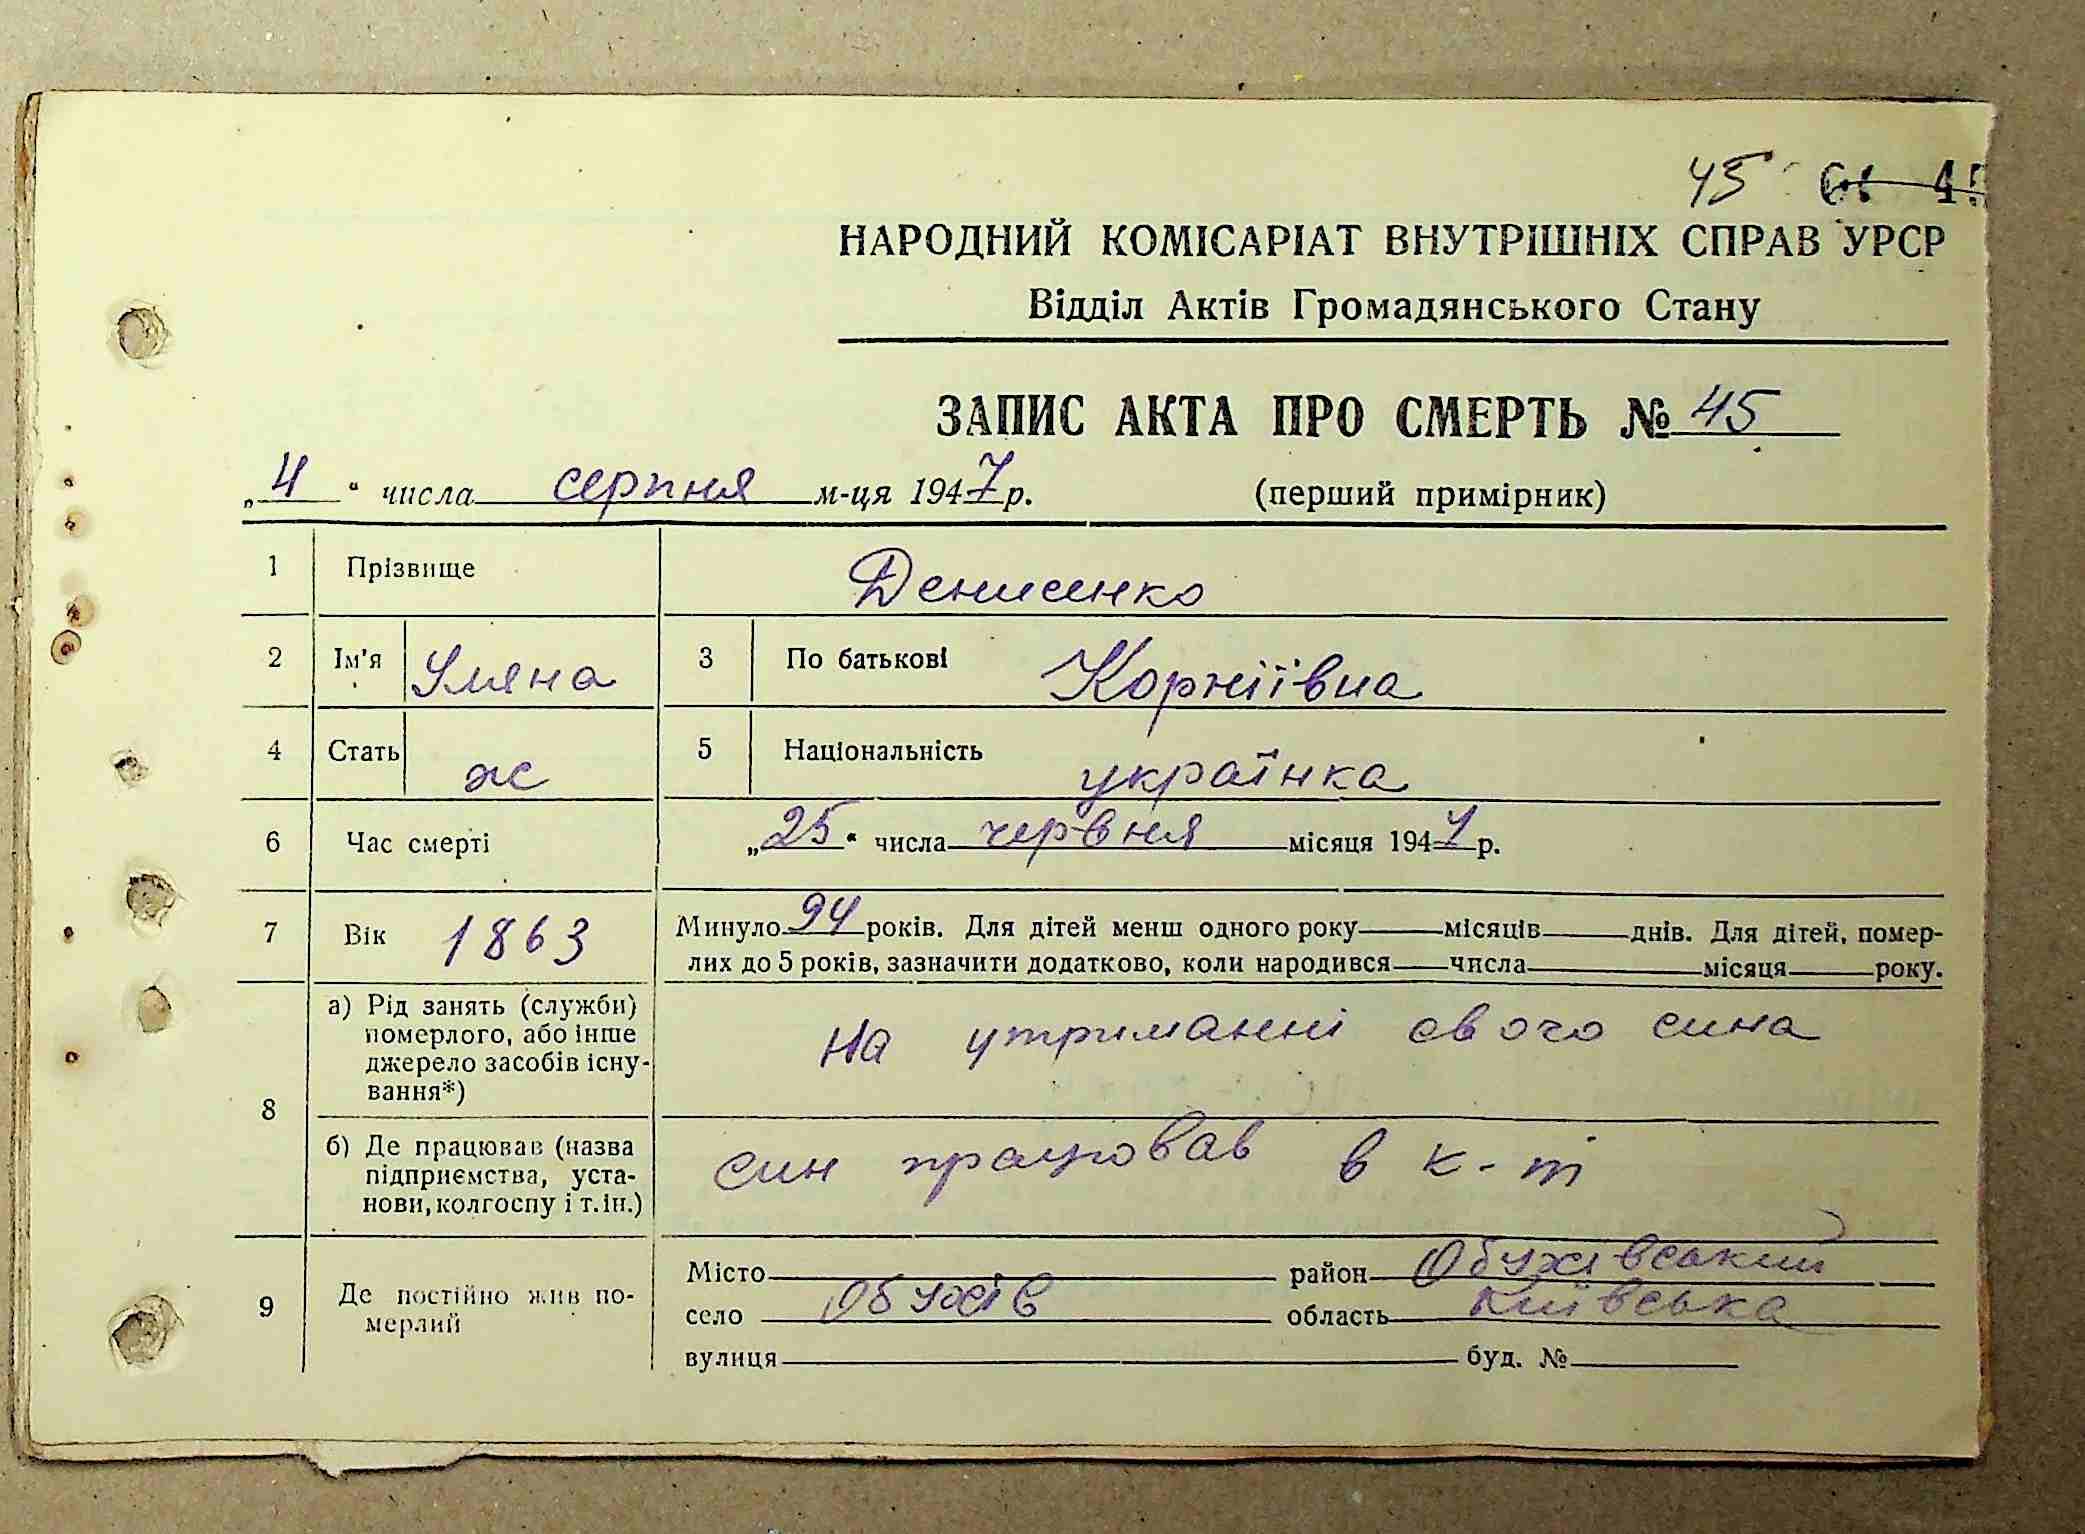 45
НАРОДНИЙ КОМІСАРІАТ ВНУТРІШНІХ СПРАВ УРСР
Відділ Актів Громадянського Стану
ЗАПИС АКТА ПРО СМЕРТЬ № 45
„4“ числа серпня м-ця 1947 р. (перший примірник)
1 Прізвище Денисенко
2 Ім'я Уляна 3 По батькові Корніївна
4 Стать ж 5 Національність українка
6 Час смерті „25“ числа червня місяця 1947 р.
7 Вік 1863 Минуло 94 років. Для дітей менш одного року місяців днів. Для дітей, помер-
лих до 5 років, зазначити додатково, коли народився числа місяця року.
8 а) Рід занять (служби)
померлого, або інше
джерело засобів існу-
вання*) На утриманні свого сина
б) Де працював (назва
підприємства, уста-
нови, колгоспу і т.ін.) син працював в к-ті
9 Де постійно жив по-
мерлий
Місто район Обухівський
село Обухів область Київська
вулиця буд. №